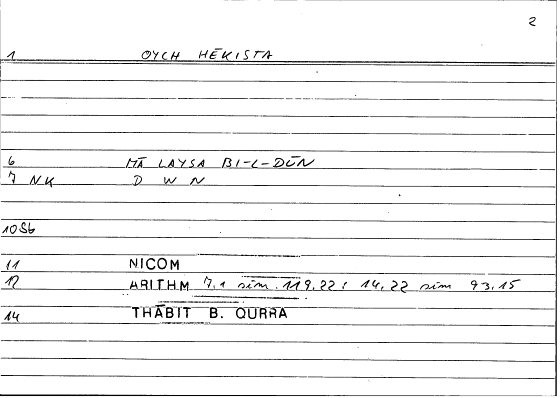 2
1 OYCH HĒKISTA
6 MĀ LAYSA BI-L-DŪN
7 NK D W N
10 Sb
11 NICOM
12 ARITHM 7,1 sim. 119,22; 14,22 sim 93,15
14 THĀBIT B. QURRA